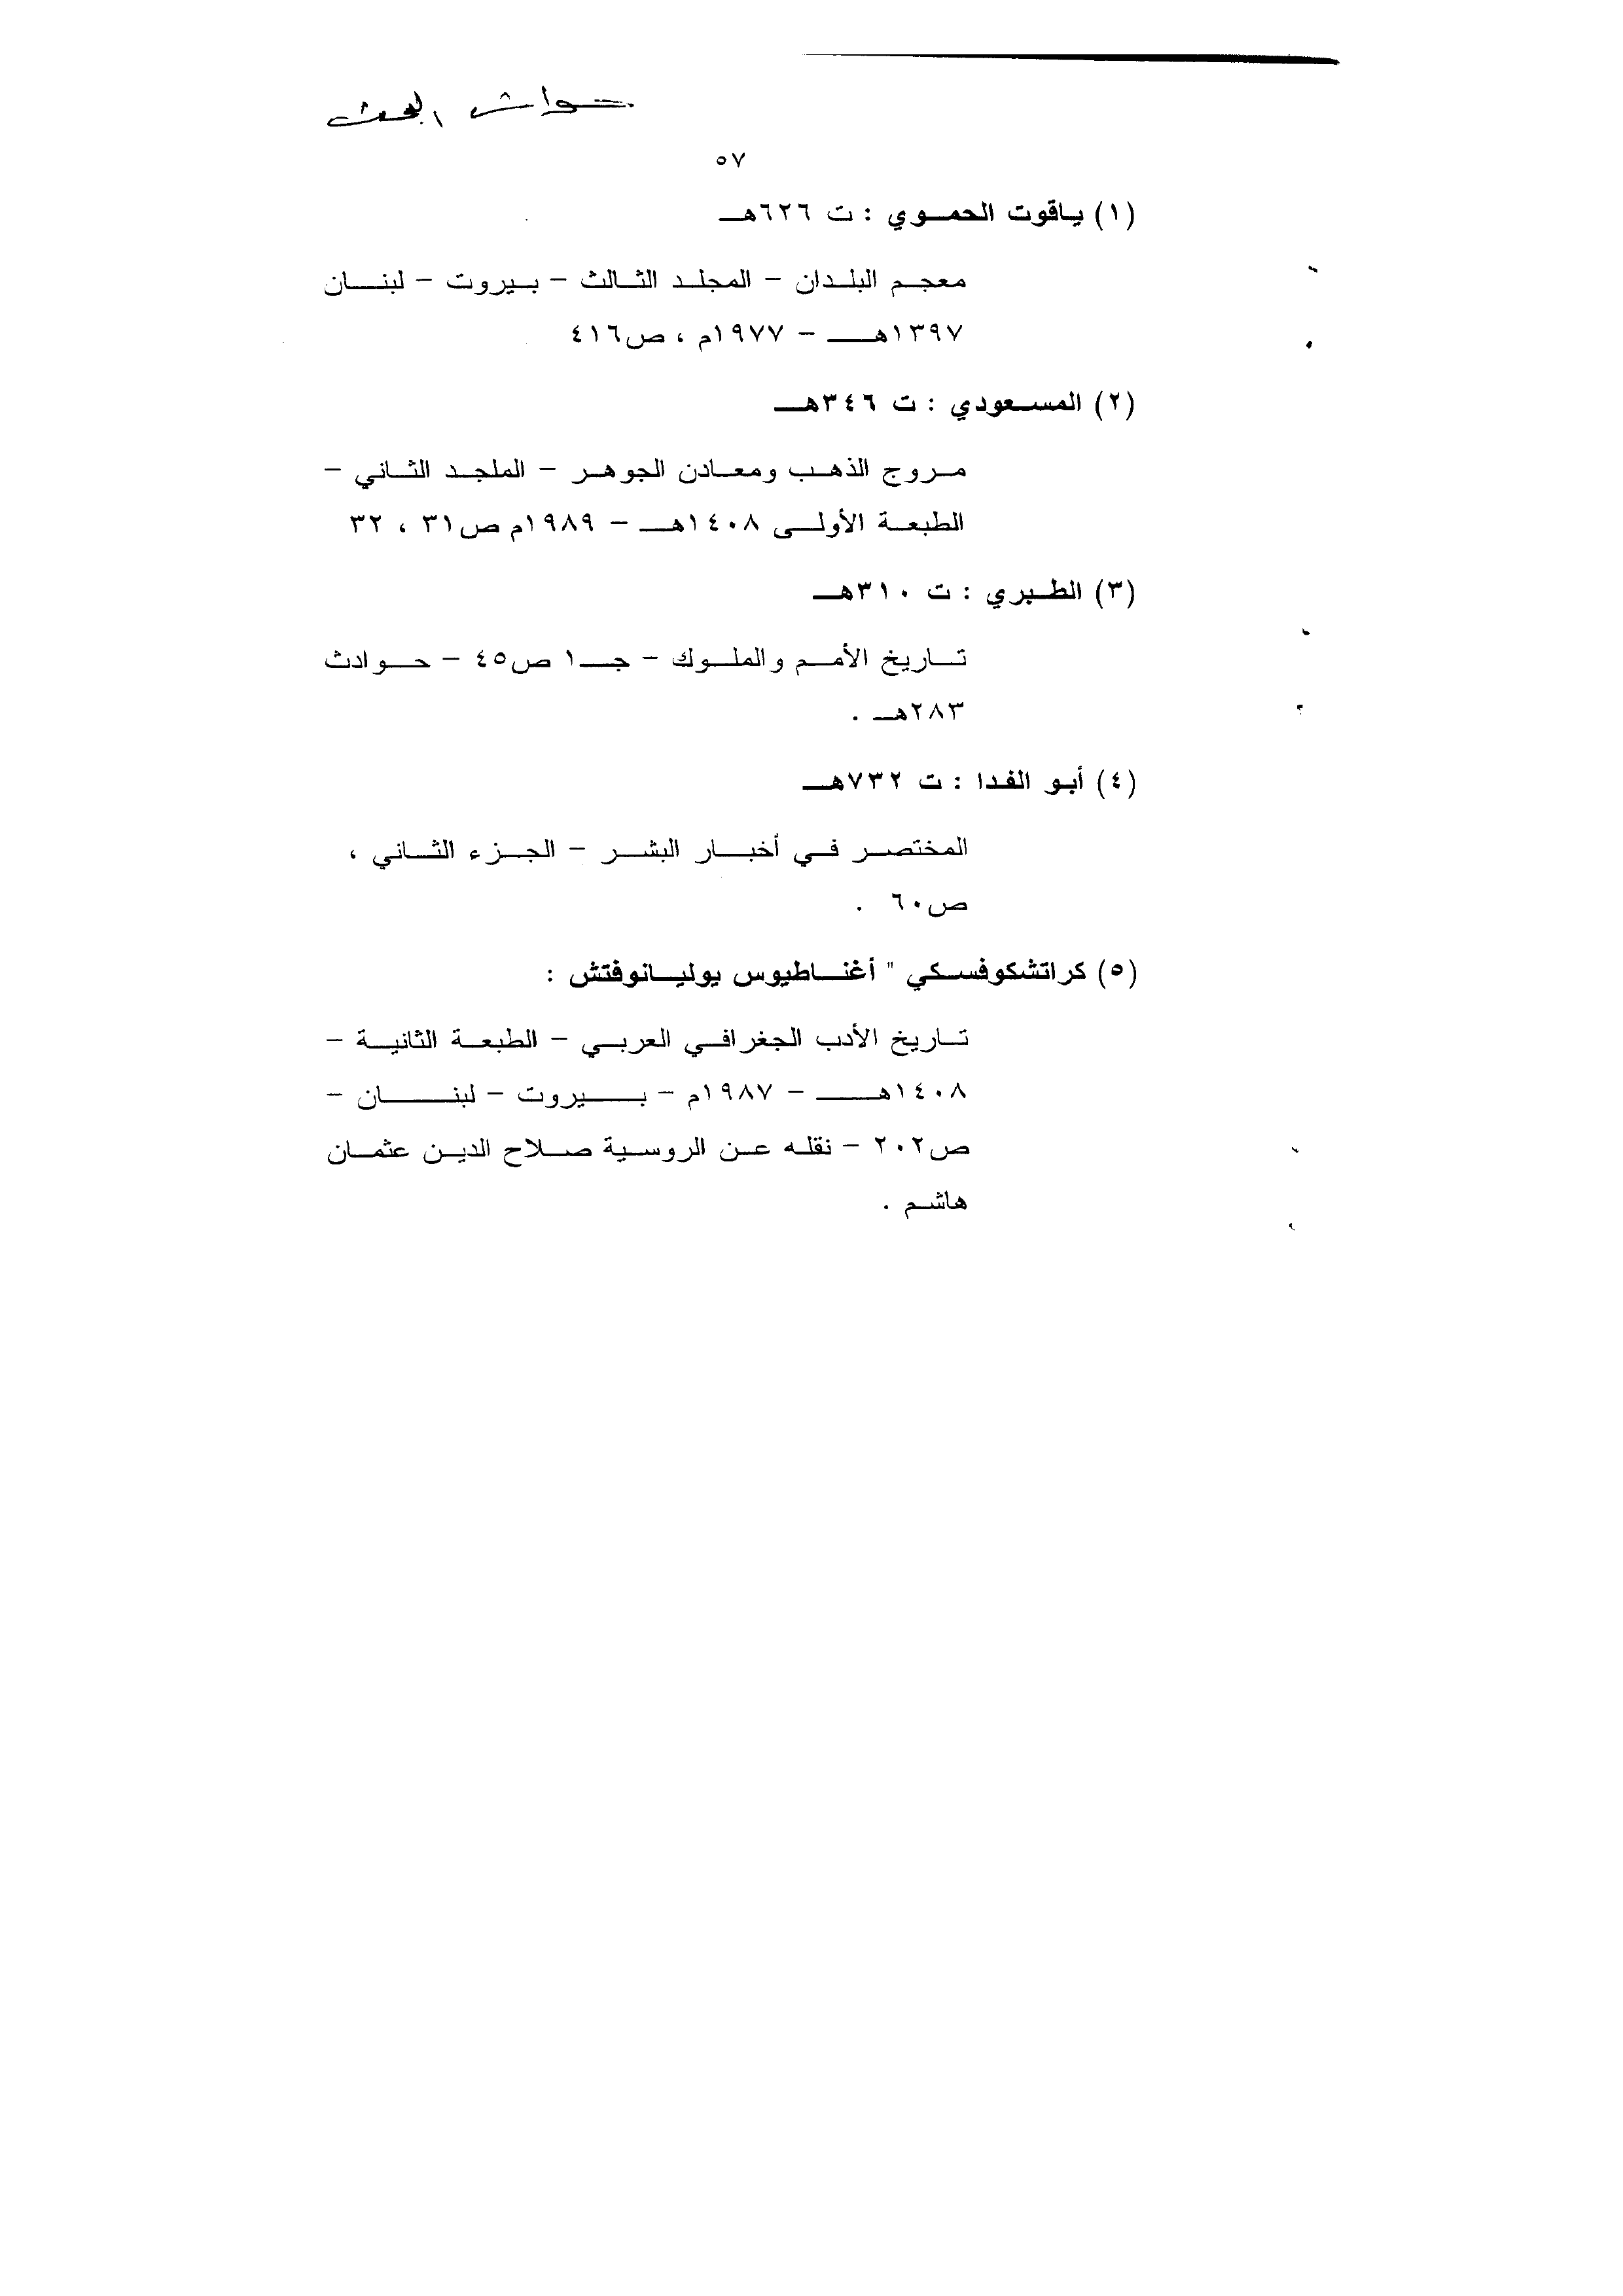 حواشى البحث
٥٧
(١) ياقوت الحموي : ت ٦٢٦هـ
معجم البلدان – المجلد الثالث – بيروت – لبنان
١٣٩٧هـ – ١٩٧٧م ، ص٤١٦
(٢) المسعودي : ت ٣٤٦هـ
مروج الذهب ومعادن الجوهر – الملجد الثاني –
الطبعة الأولى ١٤٠٨هـ – ١٩٨٩م ص٣١ ، ٣٢
(٣) الطبري : ت ٣١٠هـ
تاريخ الأمم والملوك – جـ١ ص٤٥ – حوادث
٢٨٣هـ .
(٤) أبو الفدا : ت ٧٣٢هـ
المختصر في أخبار البشر – الجزء الثاني ،
ص٦٠ .
(٥) كراتشكوفسكي " أغناطيوس يوليانوفتش :
تاريخ الأدب الجغرافي العربي – الطبعة الثانية –
١٤٠٨هـ – ١٩٨٧م – بيروت – لبنان –
ص٢٠٢ – نقله عن الروسية صلاح الدين عثمان
هاشم .